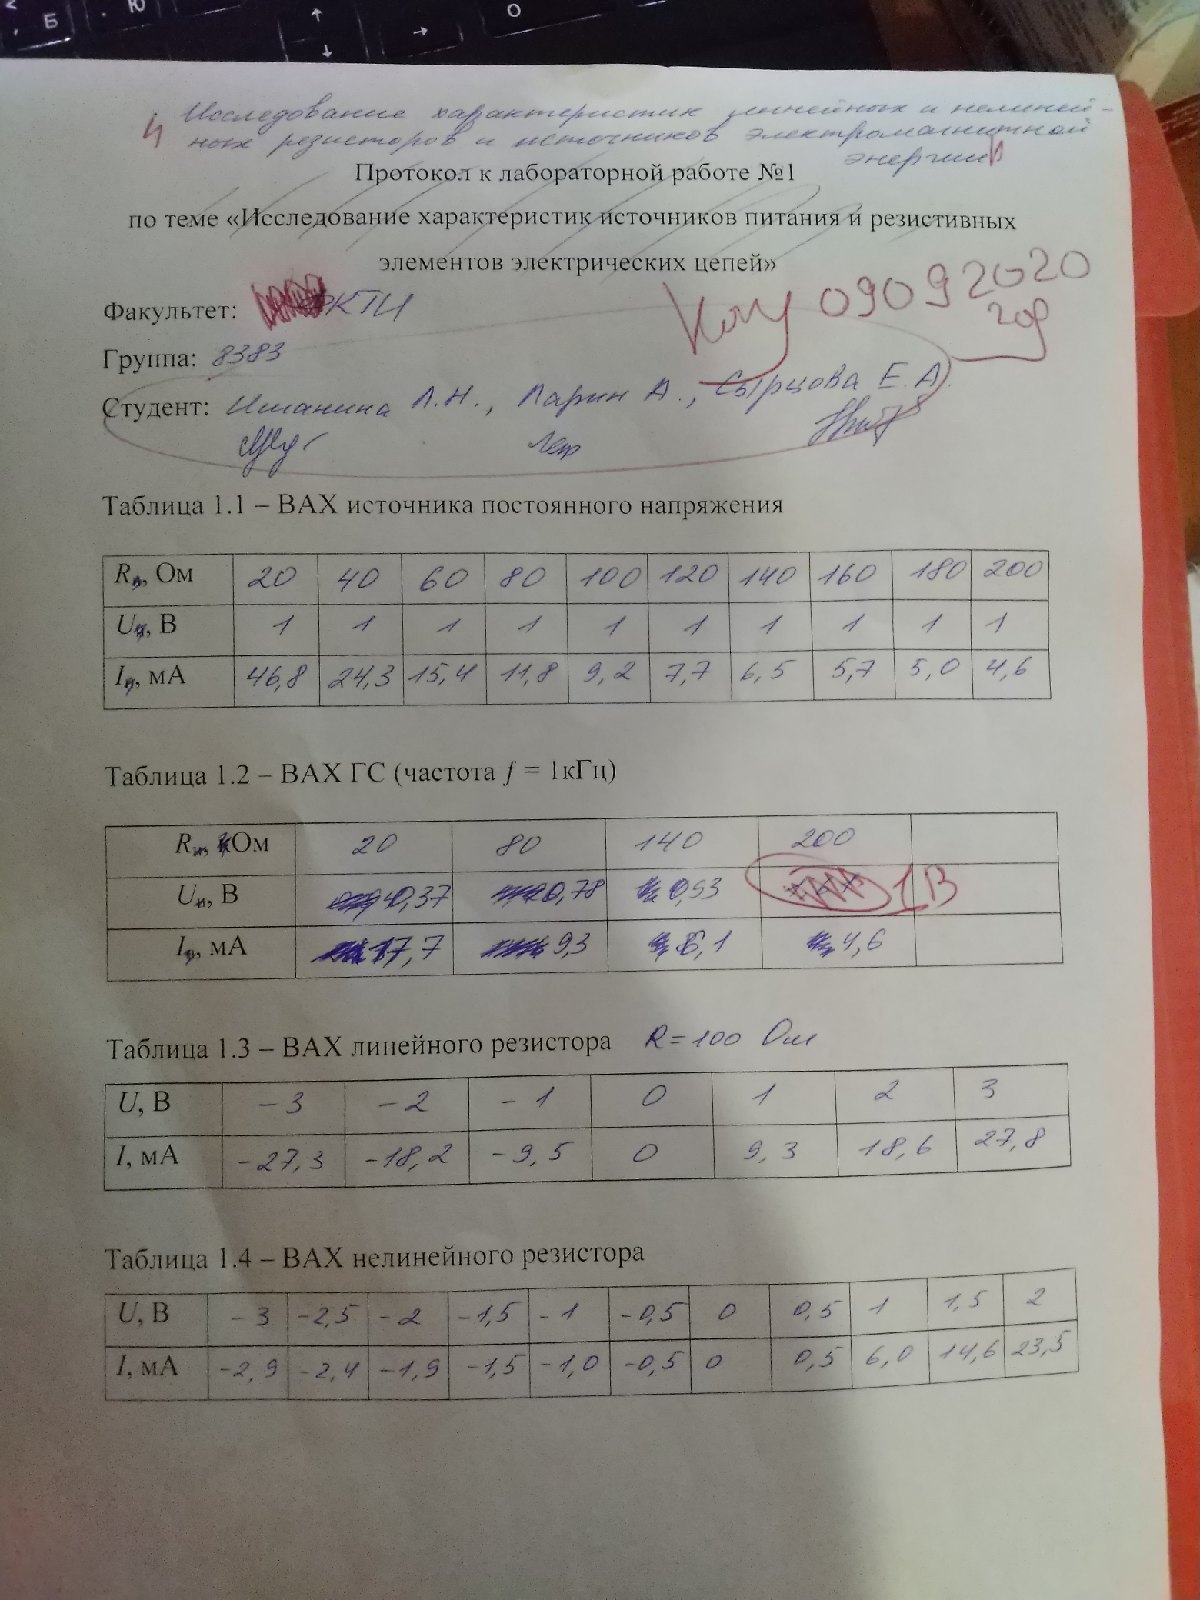 Исследование характеристик линейных и нелиней-
ных резисторов и источников электромагнитной
энергии
Протокол к лабораторной работе №1
по теме «Исследование характеристик источников питания и резистивных
элементов электрических цепей»
Факультет: КТИ
09092020
Группа: 8383
Студент: Ишанина Л.Н., Ларин А., Сырцова Е.А.
Таблица 1.1 – ВАХ источника постоянного напряжения
R, Ом 20 40 60 80 100 120 140 160 180 200
U, В 1 1 1 1 1 1 1 1 1 1
I, мА 46,8 24,3 15,4 11,8 9,2 7,7 6,5 5,7 5,0 4,6
Таблица 1.2 – ВАХ ГС (частота f = 1кГц)
R, Ом 20 80 140 200
U, В 0,37 0,78 0,93 1В
I, мА 17,7 9,3 6,1 4,6
Таблица 1.3 – ВАХ линейного резистора R = 100 Ом
U, В -3 -2 -1 0 1 2 3
I, мА -27,3 -18,2 -9,5 0 9,3 18,6 27,8
Таблица 1.4 – ВАХ нелинейного резистора
U, В -3 -2,5 -2 -1,5 -1 -0,5 0 0,5 1 1,5 2
I, мА -2,9 -2,4 -1,9 -1,5 -1,0 -0,5 0 0,5 6,0 14,6 23,5